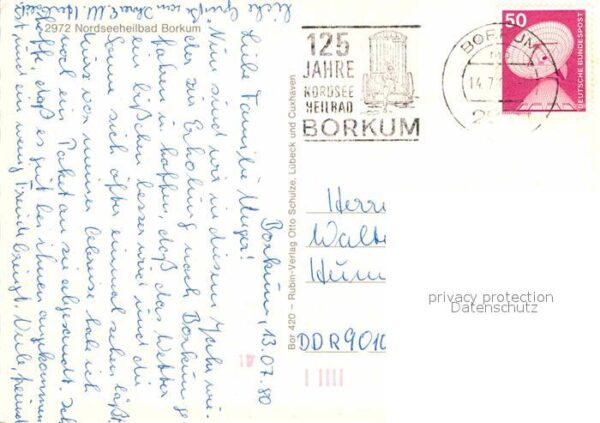 2972 Nordseeheilbad Borkum
Borkum, 13.07.80
Liebe Familie Unger!
Nun sind wir in diesem Jahr wie-
der zur Erholung nach Borkum ge-
fahren u. hoffen, daß das Wetter
ein bißchen besser wird und die
Sonne sich öfter einmal sehen läßt.
Kurz vor meiner Abreise habe ich
noch ein Paket an sie abgesandt. Ich
hoffe, daß es gut bei ihnen angekommen
ist und ein wenig Freude bringt. Viele, 
liebe Grüße von Ihrer
Bor 420 – Rubin-Verlag Otto Schulze, Lübeck und Cuxhaven
125
JAHRE
NORDSEE
HEILBAD
BORKUM
BORKUM
14.7.
50
DEUTSCHE BUNDESPOST
Herrn
Walte
DDR 9010
privacy protection
Datenschutz